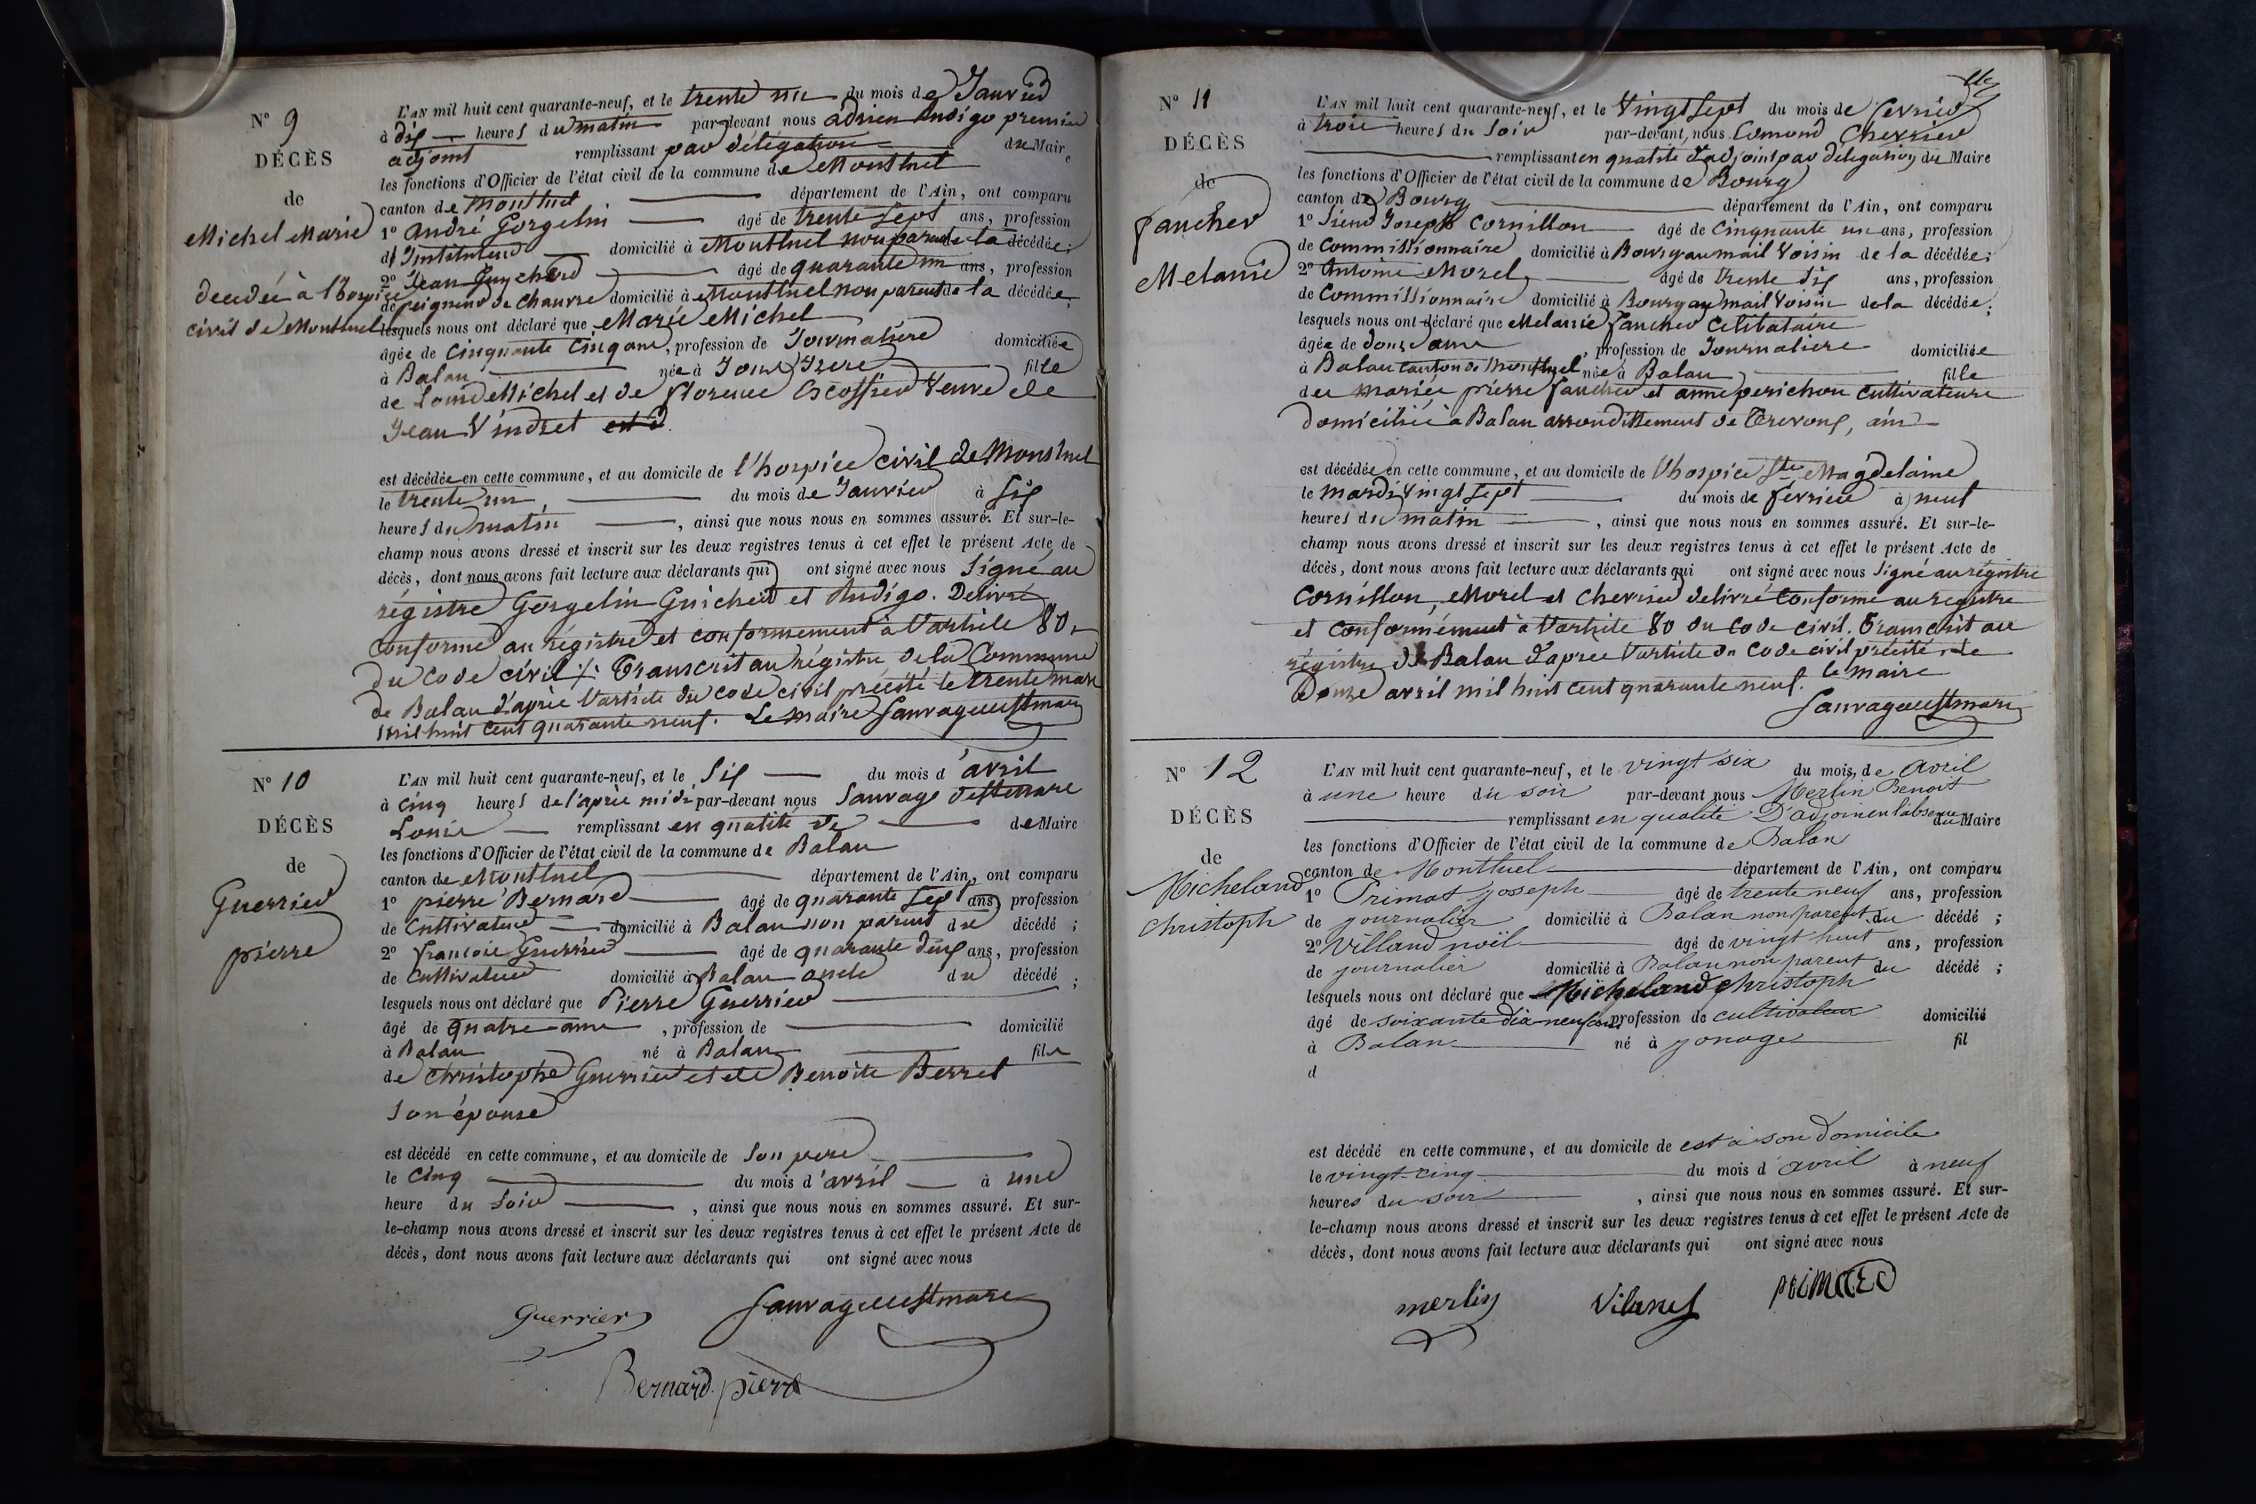 N° 9
DÉCÈS
de
Michel Marie
decedée à l'hospice
civil de Montluel
L'AN mil huit cent quarante-neuf, et le trente un du mois de Janvier
à dix heures du matin par-devant nous adrien Andigo premier
adjoint remplissant par délégation du Maire
les fonctions d'Officier de l'état civil de la commune de Montluel
canton de Montluel département de l'Ain, ont comparu
1° andré Gorgelin âgé de trente sept ans, profession
d'Instituteur domicilié à Montluel non parent de la décédée;
2° Jean Guicherd âgé de quarante un ans, profession
de peigneur de chanvre domicilié à Montluel non parent de la décédée;
lesquels nous ont déclaré que Marie Michel
âgée de cinquante cinq ans, profession de Journalière domiciliée
à Balan née à Isère fille
de Louis Michel et de Florence Escoffier Veuve de
Jean Vindret
est décédée en cette commune, et au domicile de l'hospice civil de Montluel
le trente un du mois de Janvier à six
heures du matin, ainsi que nous nous en sommes assuré. Et sur-le-
champ nous avons dressé et inscrit sur les deux registres tenus à cet effet le présent Acte de
décès, dont nous avons fait lecture aux déclarants qui ont signé avec nous Signé au
régistre Gorgelin Guicherd et Andigo. Delivré
conforme au régistre et conformement à l'article 80
du code civil ./. Transcrit au régistre de la Commune
de Balan d'après l'article du code civil précité le trente mars
mil huit cent quarante neuf. Le maire Sauvage
N° 10
DÉCÈS
de
Guerrier
pierre
L'AN mil huit cent quarante-neuf, et le six du mois d'avril
à cinq heures de l'après midi par-devant nous Sauvage
Louis remplissant en qualité de de Maire
les fonctions d'Officier de l'état civil de la commune de Balan
canton de Montluel département de l'Ain, ont comparu
1° pierre Bernard âgé de quarante sept ans, profession
de Cultivateur domicilié à Balan non parent du décédé;
2° francois Guerrier âgé de quarante deux ans, profession
de Cultivateur domicilié à Balan oncle du décédé;
lesquels nous ont déclaré que Pierre Guerrier
âgé de quatre ans, profession de domicilié
à Balan né à Balan fils
de christophe Guerrier et de Benoite Berret
son épouse
est décédé en cette commune, et au domicile de son père
le cinq du mois d'avril à une
heure du soir, ainsi que nous nous en sommes assuré. Et sur-
le-champ nous avons dressé et inscrit sur les deux registres tenus à cet effet le présent Acte de
décès, dont nous avons fait lecture aux déclarants qui ont signé avec nous
Guerrier Sauvage
Bernard pierre
N° 11
DÉCÈS
de
faucher
Melanie
L'AN mil huit cent quarante-neuf, et le vingt sept du mois de février
à trois heures du soir par-devant nous Edmond Chevrier
remplissant en qualité d'adjoint par délégation du Maire
les fonctions d'Officier de l'état civil de la commune de Bourg
canton de Bourg département de l'Ain, ont comparu
1° Sieur Joseph Cornillon âgé de cinquante un ans, profession
de Commissionnaire domicilié à Bourg au mail Voisin de la décédée;
2° Antoine Morel âgé de trente six ans, profession
de Commissionnaire domicilié à Bourg au mail Voisin de la décédée;
lesquels nous ont déclaré que Melanie faucher Celibataire
âgée de douze ans, profession de Journaliere domiciliée
à Balan canton de Montluel née à Balan fille
des mariés pierre faucher et anne perichon cultivateurs
domiciliés à Balan arrondissement de Trevoux, ain
est décédée en cette commune, et au domicile de l'hospice Ste Magdelaine
le mardi vingt sept du mois de février à neuf
heures du matin, ainsi que nous nous en sommes assuré. Et sur-le-
champ nous avons dressé et inscrit sur les deux registres tenus à cet effet le présent Acte de
décès, dont nous avons fait lecture aux déclarants qui ont signé avec nous Signé au régistre
Cornillon, Morel et Chevrier delivré conforme au registre
et conformément à l'article 80 du code civil. Transcrit au
régistre de Balan d'apres l'article du code civil précité le
douze avril mil huit cent quarante neuf. le maire
Sauvage
N° 12
DÉCÈS
de
Micheland
christoph
L'AN mil huit cent quarante-neuf, et le vingt six du mois de avril
à une heure du soir par-devant nous Merlin Benoit
remplissant en qualité D'adjoin en l'absence du Maire
les fonctions d'Officier de l'état civil de la commune de Balan
canton de Montluel département de l'Ain, ont comparu
1° Primat joseph âgé de trente neuf ans, profession
de journalier domicilié à Balan non parent du décédé;
2° Villand noël âgé de vingt huit ans, profession
de journalier domicilié à Balan non parent du décédé;
lesquels nous ont déclaré que Micheland christoph
âgé de soixante dix neuf ans profession de cultivateur domicilié
à Balan né à jonage fil
d
est décédé en cette commune, et au domicile de est à son domicile
le vingt-cinq du mois d'avril à neuf
heures du soir, ainsi que nous nous en sommes assuré. Et sur-
le-champ nous avons dressé et inscrit sur les deux registres tenus à cet effet le présent Acte de
décès, dont nous avons fait lecture aux déclarants qui ont signé avec nous
merlin